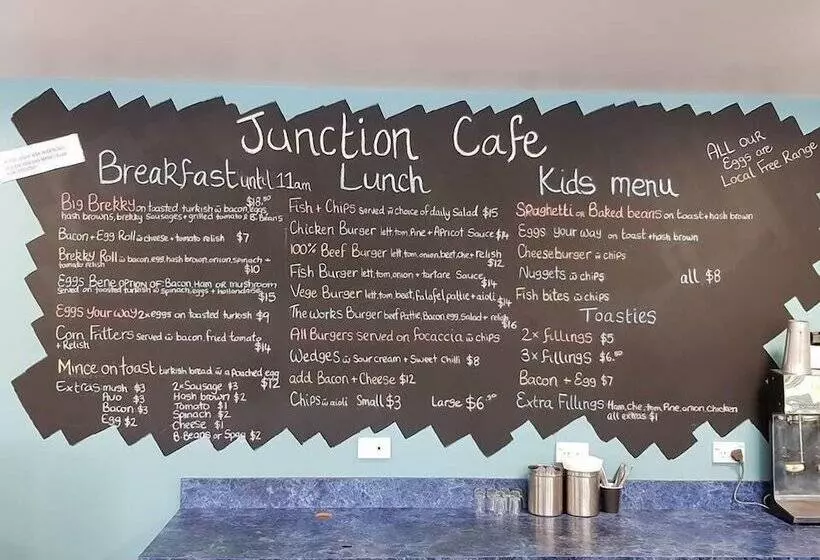 Junction Cafe
ALL OUR
Eggs are
Local Free Range
Breakfast until 11am
Big Brekky on toasted turkish w bacon, eggs, $18.50
hash browns, brekky sausages + grilled tomato & B.Beans
Bacon + Egg Roll w cheese + tomato relish $7
Brekky Roll w bacon, egg, hash brown, onion, spinach +
tomato relish $10
Eggs Bene OPTION OF: Bacon, Ham or mushroom
served on toasted turkish w spinach, eggs + hollandaise $15
Eggs your way 2x eggs on toasted turkish $9
Corn Fritters served w bacon, fried tomato
+ Relish $14
Mince on toast turkish bread w a Poached egg $12
Extras mush $3
Avo $3
Bacon $3
Egg $2
2x Sausage $3
Hash brown $2
Tomato $1
Spinach $2
Cheese $1
B Beans or Spag $2
Lunch
Fish + Chips served w choice of daily Salad $15
Chicken Burger lett, tom, Pine + Apricot Sauce $14
100% Beef Burger lett, tom, onion, beet, che + Relish $12
Fish Burger lett, tom, onion + tartare Sauce $14
Vege Burger lett, tom, beet, falafel pattie + aioli $14
The works Burger beef Pattie, Bacon, egg, Salad + relish $16
All Burgers served on focaccia w chips
Wedges w sour cream + Sweet chilli $8
add Bacon + Cheese $12
Chips w aioli Small $3 Large $6.50
Kids menu
Spaghetti or Baked beans on toast + hash brown
Eggs your way on toast + hash brown
Cheeseburger w chips
Nuggets w chips all $8
Fish bites w chips
Toasties
2x fillings $5
3x fillings $6.50
Bacon + Egg $7
Extra Fillings Ham, che, tom, Pine, onion, chicken
all extras $1